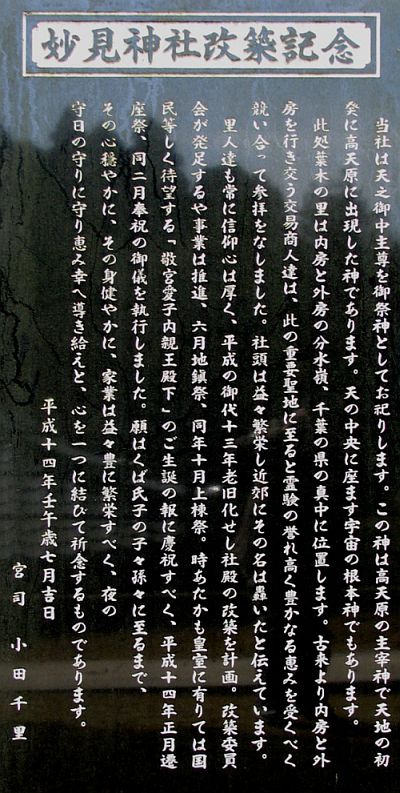 妙見神社改築記念
当社は天之御中主尊を御祭神としてお祀りします。この神は高天原の主宰神で天地の初
発に高天原に出現した神であります。天の中央に座ます宇宙の根本神でもあります。
此処葉木の里は内房と外房の分水嶺、千葉の県の真中に位置します。古来より内房と外
房を行き交う交易商人達は、此の重要聖地に至ると霊験の誉れ高く豊かなる恵みを受くべく
競い合って参拝をなしました。社頭は益々繁栄し近郊にその名は轟いたと伝えています。
里人達も常に信仰心は厚く、平成の御代十三年老旧化せし社殿の改築を計画。改築委員
会が発足するや事業は推進、六月地鎮祭、同年十月上棟祭。時あたかも皇室に有りては国
民等しく待望する「敬宮愛子内親王殿下」のご生誕の報に慶祝すべく、平成十四年正月遷
座祭、同二月奉祝の御儀を執行しました。願はくば氏子の子々孫々に至るまで、
その心穏やかに、その身健やかに、家業は益々豊に繁栄すべく、夜の
守日の守りに守り恵み幸へ導き給えと、心を一つに結びて祈念するものであります。
平成十四年壬午歳七月吉日
宮司 小田千里